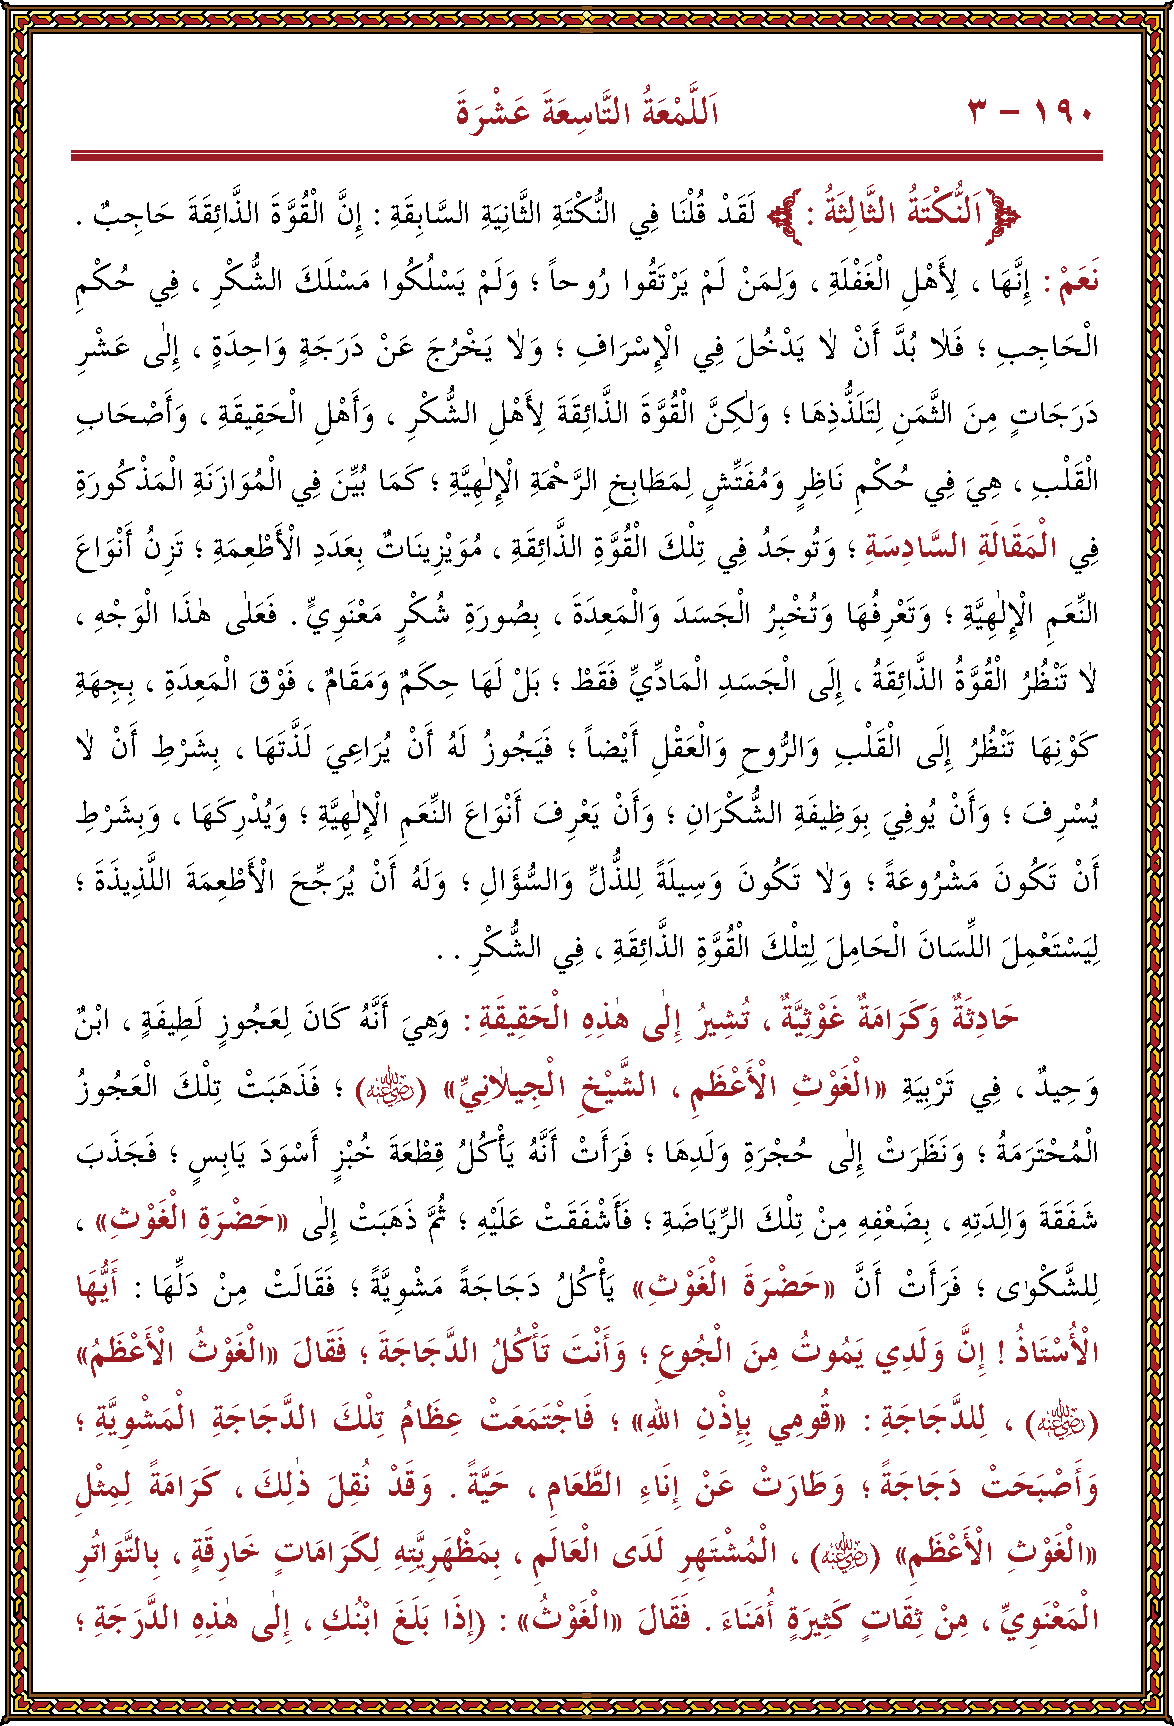 ١٩٠ – ٣ اَللَّمْعَةُ التَّاسِعَةَ عَشْرَةَ
﴿اَلنُّكْتَةُ الثَّالِثَةُ : ﴾ لَقَدْ قُلْنَا فِي النُّكْتَةِ الثَّانِيَةِ السَّابِقَةِ : إِنَّ الْقُوَّةَ الذَّائِقَةَ حَاجِبٌ .
نَعَمْ : إِنَّهَا ، لِأَهْلِ الْغَفْلَةِ ، وَلِمَنْ لَمْ يَرْتَقُوا رُوحاً ؛ وَلَمْ يَسْلُكُوا مَسْلَكَ الشُّكْرِ ، فِي حُكْمِ
الْحَاجِبِ ؛ فَلَا بُدَّ أَنْ لَا يَدْخُلَ فِي الْإِسْرَافِ ؛ وَلَا يَخْرُجَ عَنْ دَرَجَةٍ وَاحِدَةٍ ، إِلٰى عَشْرِ
دَرَجَاتٍ مِنَ الثَّمَنِ لِتَلَذُّذِهَا ؛ وَلٰكِنَّ الْقُوَّةَ الذَّائِقَةَ لِأَهْلِ الشُّكْرِ ، وَأَهْلِ الْحَقِيقَةِ ، وَأَصْحَابِ
الْقَلْبِ ، هِيَ فِي حُكْمِ نَاظِرٍ وَمُفَتِّشٍ لِمَطَابِخِ الرَّحْمَةِ الْإِلٰهِيَّةِ ؛ كَمَا بُيِّنَ فِي الْمُوَازَنَةِ الْمَذْكُورَةِ
فِي الْمَقَالَةِ السَّادِسَةِ ؛ وَتُوجَدُ فِي تِلْكَ الْقُوَّةِ الذَّائِقَةِ ، مُوَيْزِينَاتٌ بِعَدَدِ الْأَطْعِمَةِ ؛ تَزِنُ أَنْوَاعَ
النِّعَمِ الْإِلٰهِيَّةِ ؛ وَتَعْرِفُهَا وَتُخْبِرُ الْجَسَدَ وَالْمَعِدَةَ ، بِصُورَةِ شُكْرٍ مَعْنَوِيٍّ . فَعَلٰى هٰذَا الْوَجْهِ ،
لَا تَنْظُرُ الْقُوَّةُ الذَّائِقَةُ ، إِلَى الْجَسَدِ الْمَادِّيِّ فَقَطْ ؛ بَلْ لَهَا حِكَمٌ وَمَقَامٌ ، فَوْقَ الْمَعِدَةِ ، بِجِهَةِ
كَوْنِهَا تَنْظُرُ إِلَى الْقَلْبِ وَالرُّوحِ وَالْعَقْلِ أَيْضاً ؛ فَيَجُوزُ لَهُ أَنْ يُرَاعِيَ لَذَّتَهَا ، بِشَرْطِ أَنْ لَا
يُسْرِفَ ؛ وَأَنْ يُوفِيَ بِوَظِيفَةِ الشُّكْرَانِ ؛ وَأَنْ يَعْرِفَ أَنْوَاعَ النِّعَمِ الْإِلٰهِيَّةِ ؛ وَيُدْرِكَهَا ، وَبِشَرْطِ
أَنْ تَكُونَ مَشْرُوعَةً ؛ وَلَا تَكُونَ وَسِيلَةً لِلذُّلِّ وَالسُّؤَالِ ؛ وَلَهُ أَنْ يُرَجِّحَ الْأَطْعِمَةَ اللَّذِيذَةَ ؛
لِيَسْتَعْمِلَ اللِّسَانَ الْحَامِلَ لِتِلْكَ الْقُوَّةِ الذَّائِقَةِ ، فِي الشُّكْرِ . .
حَادِثَةٌ وَكَرَامَةٌ غَوْثِيَّةٌ ، تُشِيرُ إِلٰى هٰذِهِ الْحَقِيقَةِ : وَهِيَ أَنَّهُ كَانَ لِعَجُوزٍ لَطِيفَةٍ ، ابْنٌ
وَحِيدٌ ، فِي تَرْبِيَةِ «الْغَوْثِ الْأَعْظَمِ ، الشَّيْخِ الْجِيلَانِيِّ» (رضي الله عنه) ؛ فَذَهَبَتْ تِلْكَ الْعَجُوزُ
الْمُحْتَرَمَةُ ؛ وَنَظَرَتْ إِلٰى حُجْرَةِ وَلَدِهَا ؛ فَرَأَتْ أَنَّهُ يَأْكُلُ قِطْعَةَ خُبْزٍ أَسْوَدَ يَابِسٍ ؛ فَجَذَبَ
شَفَقَةَ وَالِدَتِهِ ، بِضَعْفِهِ مِنْ تِلْكَ الرِّيَاضَةِ ؛ فَأَشْفَقَتْ عَلَيْهِ ؛ ثُمَّ ذَهَبَتْ إِلٰى «حَضْرَةِ الْغَوْثِ» ،
لِلشَّكْوٰى ؛ فَرَأَتْ أَنَّ «حَضْرَةَ الْغَوْثِ» يَأْكُلُ دَجَاجَةً مَشْوِيَّةً ؛ فَقَالَتْ مِنْ دَلِّهَا : أَيُّهَا
الْأُسْتَاذُ ! إِنَّ وَلَدِي يَمُوتُ مِنَ الْجُوعِ ؛ وَأَنْتَ تَأْكُلُ الدَّجَاجَةَ ؛ فَقَالَ «الْغَوْثُ الْأَعْظَمُ»
(رضي الله عنه) ، لِلدَّجَاجَةِ : «قُومِي بِإِذْنِ اللهِ» ؛ فَاجْتَمَعَتْ عِظَامُ تِلْكَ الدَّجَاجَةِ الْمَشْوِيَّةِ ؛
وَأَصْبَحَتْ دَجَاجَةً ؛ وَطَارَتْ عَنْ إِنَاءِ الطَّعَامِ ، حَيَّةً . وَقَدْ نُقِلَ ذٰلِكَ ، كَرَامَةً لِمِثْلِ
«الْغَوْثِ الْأَعْظَمِ» (رضي الله عنه) ، الْمُشْتَهِرِ لَدَى الْعَالَمِ ، بِمَظْهَرِيَّتِهِ لِكَرَامَاتٍ خَارِقَةٍ ، بِالتَّوَاتُرِ
الْمَعْنَوِيِّ ، مِنْ ثِقَاتٍ كَثِيرَةٍ أُمَنَاءَ . فَقَالَ «الْغَوْثُ» : (إِذَا بَلَغَ ابْنُكِ ، إِلٰى هٰذِهِ الدَّرَجَةِ ؛